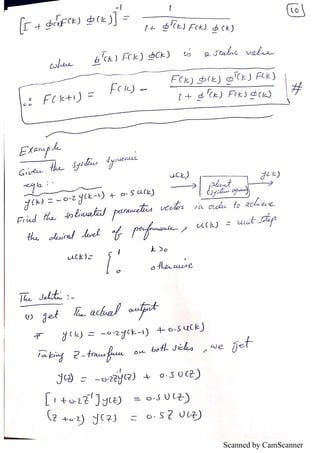 10
[I + φᵀF(k) φ(k)]⁻¹ = 1 / (1 + φᵀ(k) F(k) φ(k))
where φᵀ(k) F(k) φ(k) is a scalar value
∴ F(k+1) = F(k) - F(k) φ(k) φᵀ(k) F(k) / (1 + φᵀ(k) F(k) φ(k)) #
Example
Given the system dynamic
eqn :-
u(k) → plant → y(k)
y(k) = -0.2 y(k-1) + 0.5 u(k)
Find the estimated parameters vector in order to achieve
the desired level of performance, u(k) = unit step
u(k) = { 1 k>0
0 otherwise
The Solution :-
1) get the actual output
y(k) = -0.2y(k-1) + 0.5u(k)
Taking Z-transform on both sides, we get
y(z) = -0.2z⁻¹y(z) + 0.5 U(z)
[1 + 0.2z⁻¹] y(z) = 0.5 U(z)
(z + 0.2) y(z) = 0.5 z U(z)
Scanned by CamScanner